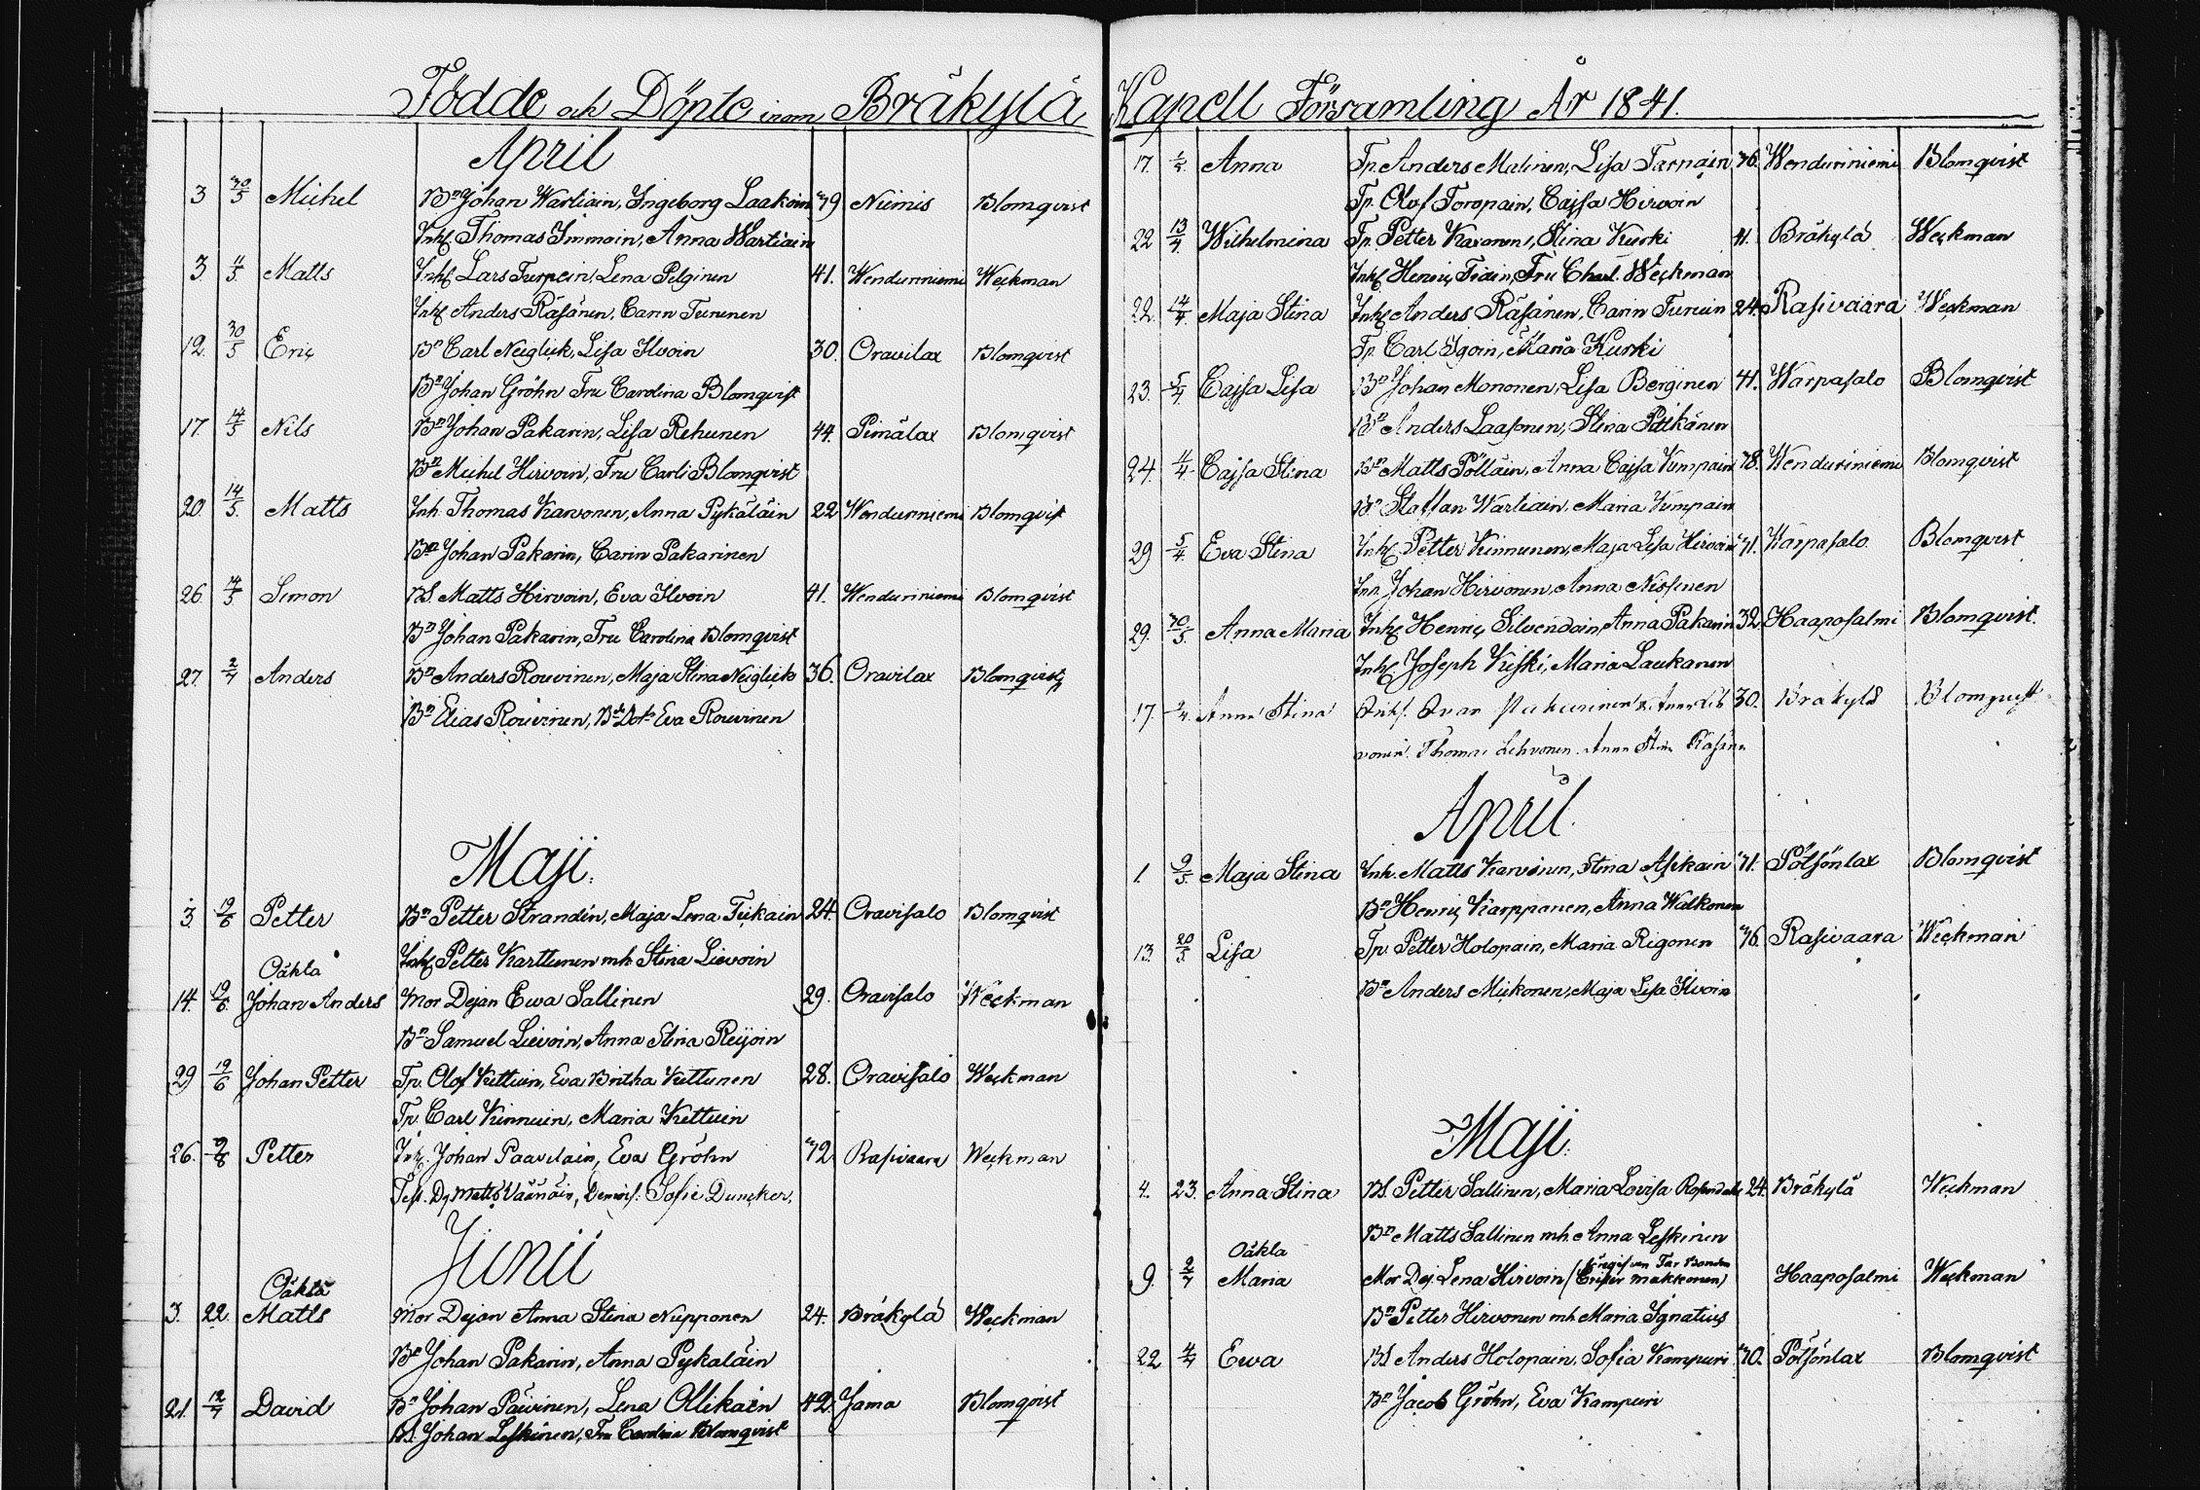 Födde och Döpte inom Bräkylä Kapell Församling År 1841.
April
3 30/5 Michel Bn Johan Wartiain, Ingeborg Laakoin 39 Niemis Blomqvist
Inh Thomas Immoin, Anna Wartiain
3. 11/5 Matts Inh Lars Turpein, Lena Pelginen 41. Wenduriniemi Weckman
Inh Anders Räsänen, Carin Turunen
12. 30/5 Eric Bn Carl Neiglick, Lisa Ilvoin 30. Oravilax Blomqvist
Bn Johan Gröhn Fru Carolina Blomqvist
17. 14/5 Nils Bn Johan Pakarin, Lisa Rehunen 44. Pimälax Blomqvist
Bn Michel Hirvoin, Fru Carli Blomqvist
20. 14/5 Matts Inh. Thomas Karvonen, Anna Pykäläin 22 Wenduriniemi Blomqvist
Bn Johan Pakarin, Carin Pakarinen
26. 14/5 Simon BS. Matts Hirvoin, Eva Ilvoin 41. Wenduriniemi Blomqvist
Bn Johan Pakarin, Fru Carolina Blomqvist
27. 2/7 Anders Bn Anders Rouvinen, Maja Stina Neiglick 36. Oravilax Blomqvist
Bn Elias Rouvinen, Bde Dotr Eva Rouvinen
Maji.
3. 19/6 Petter Bn Petter Strandén, Maja Lena Tiikain 24. Oravisalo Blomqvist
Inh Petter Karttunen mh Stina Lievoin
Oäkla
14. 19/6. Johan Anders Mor Dejan Ewa Sallinen 29. Oravisalo Weckman
Bn Samuel Lievoin, Anna Stina Reijoin
29 19/6 Johan Petter Tp. Olof Kettuin, Eva Britha Kettunen 28. Oravisalo Weckman
Tp. Carl Kinnuin, Maria Kettuin
26. Petter Inh. Johan Paavilain, Eva Gröhn 42 Rasivaara Weckman
Test. Dr Matts Väänäin, Demois: Sofie Duncker.
Junii
Oäkla
3. 22. Matts Mor Dejan Anna Stina Nupponen 24. Bräkylä Weckman
Bn Johan Pakarin, Anna Pykäläin
21. 12/7 David Bn Johan Päivinen, Lena Ollikain 42. Jama Blomqvist
BS. Johan Leskinen, Fru Carolina Blomqvist
17. Anna Tp. Anders Malinen, Lisa Tarnain 36. Wenduriniemi Blomqvist
Tp. Olof Toropain, Cajsa Hirvoin
22 13/4 Wilhelmina Tp. Petter Karonen, Stina Kurki 41. Bräkylä Weckman
Inh Henric Tiain, Fru Charl. Weckman
22. 14/4 Maja Stina Inh Anders Räsänen, Carin Turuin 24. Rasivaara Weckman
Tp. Carl Igoin, Maria Kurki
23. 5/4 Cajsa Lisa Bn Johan Mononen, Lisa Berginen 41. Warpasalo Blomqvist
Bn Anders Laasonen, Stina Pitkänen
24. 11/4 Cajsa Stina Bn Matts Pölläin, Anna Cajsa Kumpain 38. Wenduriniemi Blomqvist
Bn Staffan Wartiain, Maria Kumpain
29 5/4 Eva Stina Inh Petter Kinnunen, Maja Lisa Hirvoin 31. Warpasalo Blomqvist
Inh Johan Hirvonen, Anna Nissinen
29. 30/5. Anna Maria Inh Henric Silvendoin, Anna Pakarin 32. Haaposalmi Blomqvist.
Inh Joseph Kiiski, Maria Laukanen
17. Anna Stina 30. Bräkylä Blomqvist
Thomas Lehvonen. Anna Stina Räsänen
April.
1. 9/5. Maja Stina Inh. Matts Karvinen, Stina Asikain 31. Pötsönlax Blomqvist
Bn Henric Karppanen, Anna Walkonen
13. 20/5. Lisa Tp. Petter Holopain, Maria Rigonen 36. Rasivaara Weckman
Bn Anders Miikonen, Maja Lisa Ilvoin
Maji.
4. 23. Anna Stina BS. Petter Sallinen, Maria Lovisa 24. Bräkylä Weckman
Bn Matts Sallinen mh Anna Leskinen
Oäkla
9. 2/7 Maria Mor Dej. Lena Hirvoin (Angifven Far Bonden Makkonen) Haaposalmi Weckman
Bn Petter Hirvonen mh Maria Ignatius
22 4/7 Ewa BS Anders Holopain, Sofia Kampuri 30. Pötsönlax Blomqvist
Bn Jacob Gröhn, Eva Kampuri